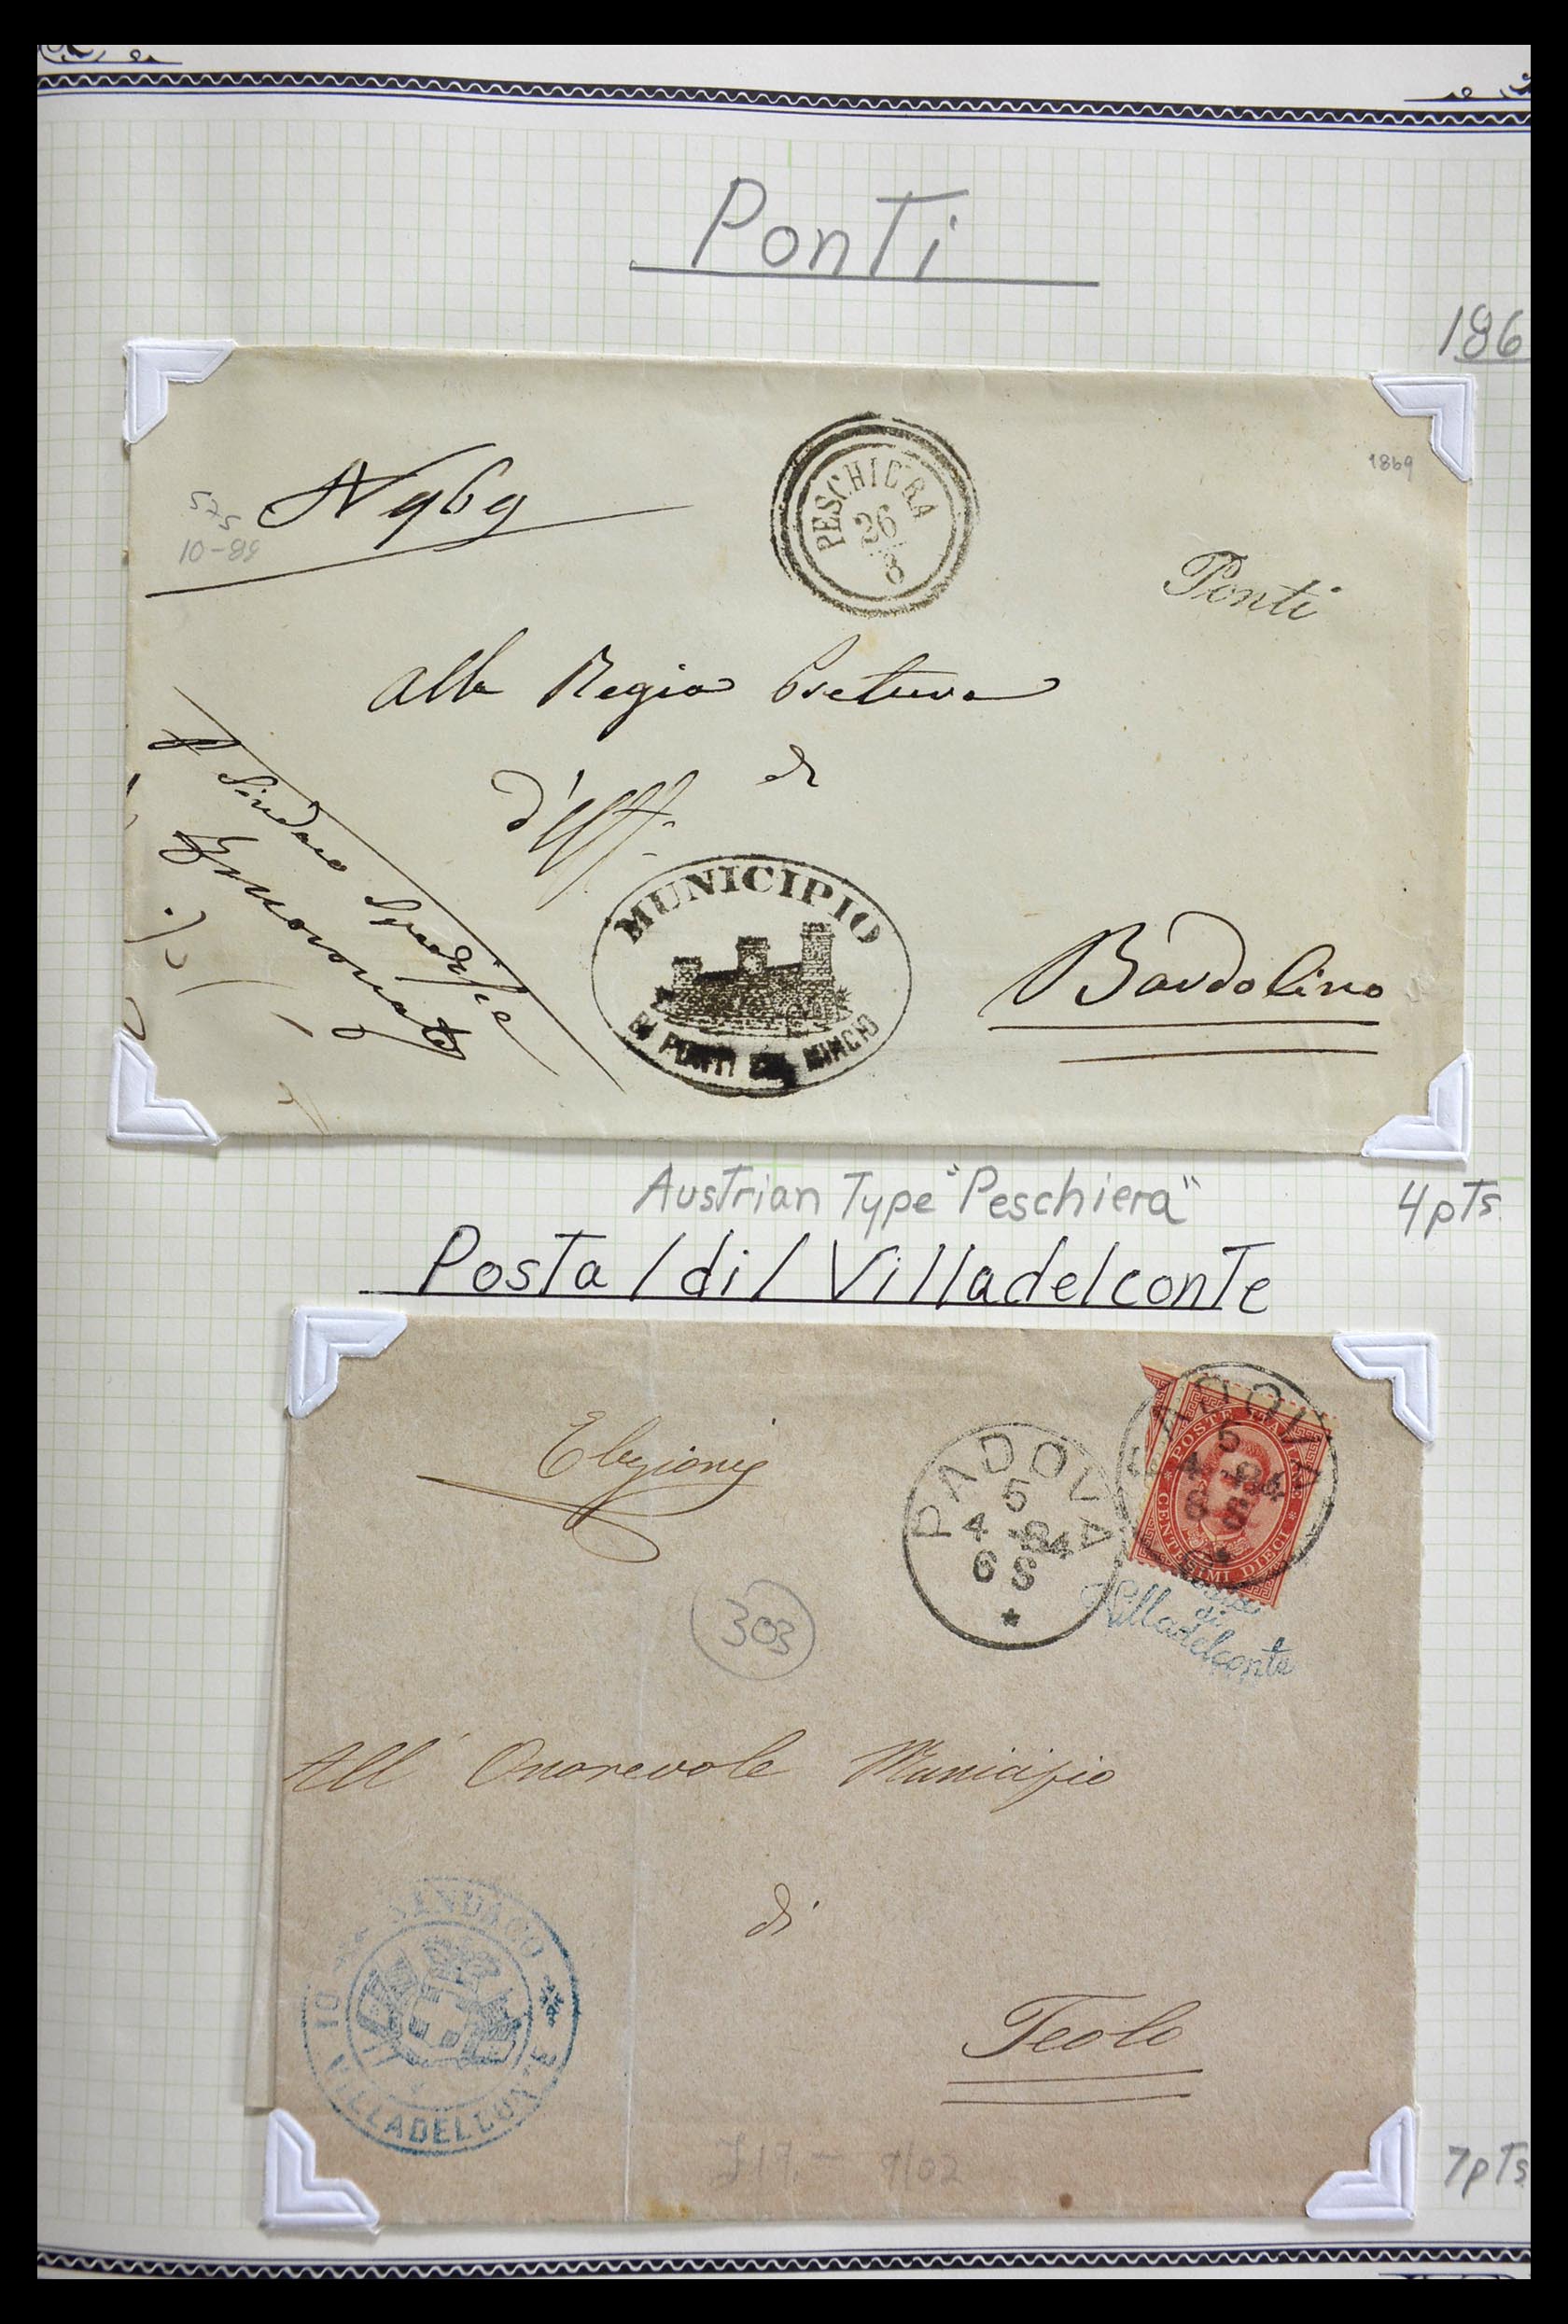 Ponti
186
1869
N 969
575
10-89
PESCHIERA
26
8
Ponti
Alla Regia Pretura
di
d'Uff.
Il Sindaco
MUNICIPIO
DI PONTI SUL MINCIO
Bardolino
Austrian Type "Peschiera"
4pts
Posta / di / Villadelconte
Elezioni
PADOVA
5
4 - 84
6 S
*
PADOVA
5
4 - 84
6 S
*
* POSTE ITALIANE *
CENTESIMI DIECI
Posta
di
Villadelconte
303
All' Onorevole Municipio
di
Teolo
SINDACO
VILLADELCONTE
17.- 9/02
7pts